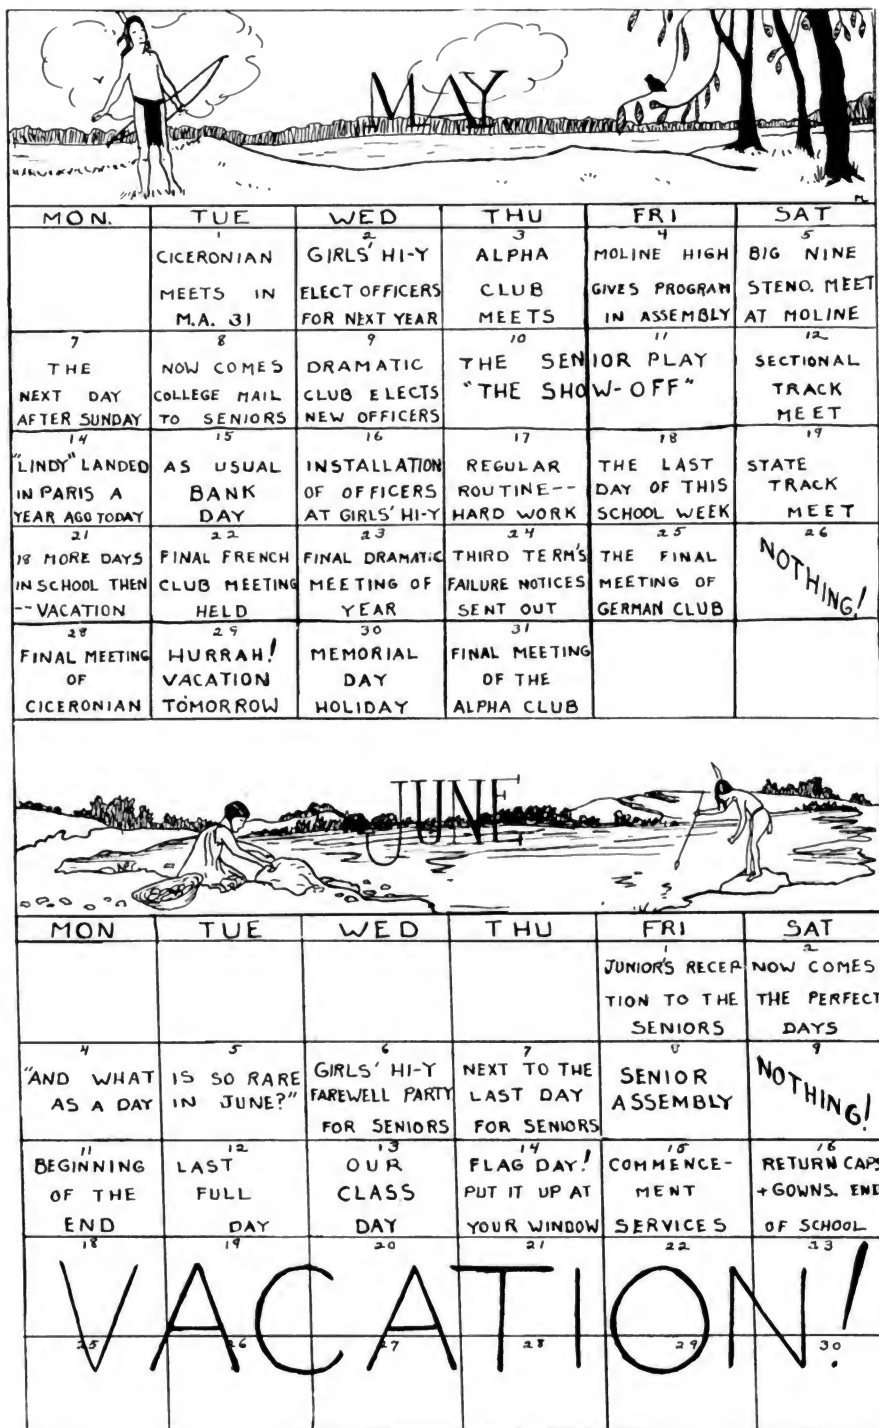 MAY
ML
MON. TUE WED THU FRI SAT
1
CICERONIAN
MEETS IN
M.A. 31
2
GIRLS' HI-Y
ELECT OFFICERS
FOR NEXT YEAR
3
ALPHA
CLUB
MEETS
4
MOLINE HIGH
GIVES PROGRAM
IN ASSEMBLY
5
BIG NINE
STENO. MEET
AT MOLINE
7
THE
NEXT DAY
AFTER SUNDAY
8
NOW COMES
COLLEGE MAIL
TO SENIORS
9
DRAMATIC
CLUB ELECTS
NEW OFFICERS
10 11
THE SENIOR PLAY
"THE SHOW-OFF"
12
SECTIONAL
TRACK
MEET
14
"LINDY" LANDED
IN PARIS A
YEAR AGO TODAY
15
AS USUAL
BANK
DAY
16
INSTALLATION
OF OFFICERS
AT GIRLS' HI-Y
17
REGULAR
ROUTINE--
HARD WORK
18
THE LAST
DAY OF THIS
SCHOOL WEEK
19
STATE
TRACK
MEET
21
18 MORE DAYS
IN SCHOOL THEN
--VACATION
22
FINAL FRENCH
CLUB MEETING
HELD
23
FINAL DRAMATIC
MEETING OF
YEAR
24
THIRD TERM'S
FAILURE NOTICES
SENT OUT
25
THE FINAL
MEETING OF
GERMAN CLUB
26
NOTHING!
28
FINAL MEETING
OF
CICERONIAN
29
HURRAH!
VACATION
TOMORROW
30
MEMORIAL
DAY
HOLIDAY
31
FINAL MEETING
OF THE
ALPHA CLUB
JUNE
MON TUE WED THU FRI SAT
1
JUNIOR'S RECEP
TION TO THE
SENIORS
2
NOW COMES
THE PERFECT
DAYS
4
"AND WHAT
AS A DAY
5
IS SO RARE
IN JUNE?"
6
GIRLS' HI-Y
FAREWELL PARTY
FOR SENIORS
7
NEXT TO THE
LAST DAY
FOR SENIORS
8
SENIOR
ASSEMBLY
9
NOTHING!
11
BEGINNING
OF THE
END
12
LAST
FULL
DAY
13
OUR
CLASS
DAY
14
FLAG DAY!
PUT IT UP AT
YOUR WINDOW
15
COMMENCE-
MENT
SERVICES
16
RETURN CAPS
+ GOWNS. END
OF SCHOOL
18 19 20 21 22 23
VACATION!
25 26 27 28 29 30